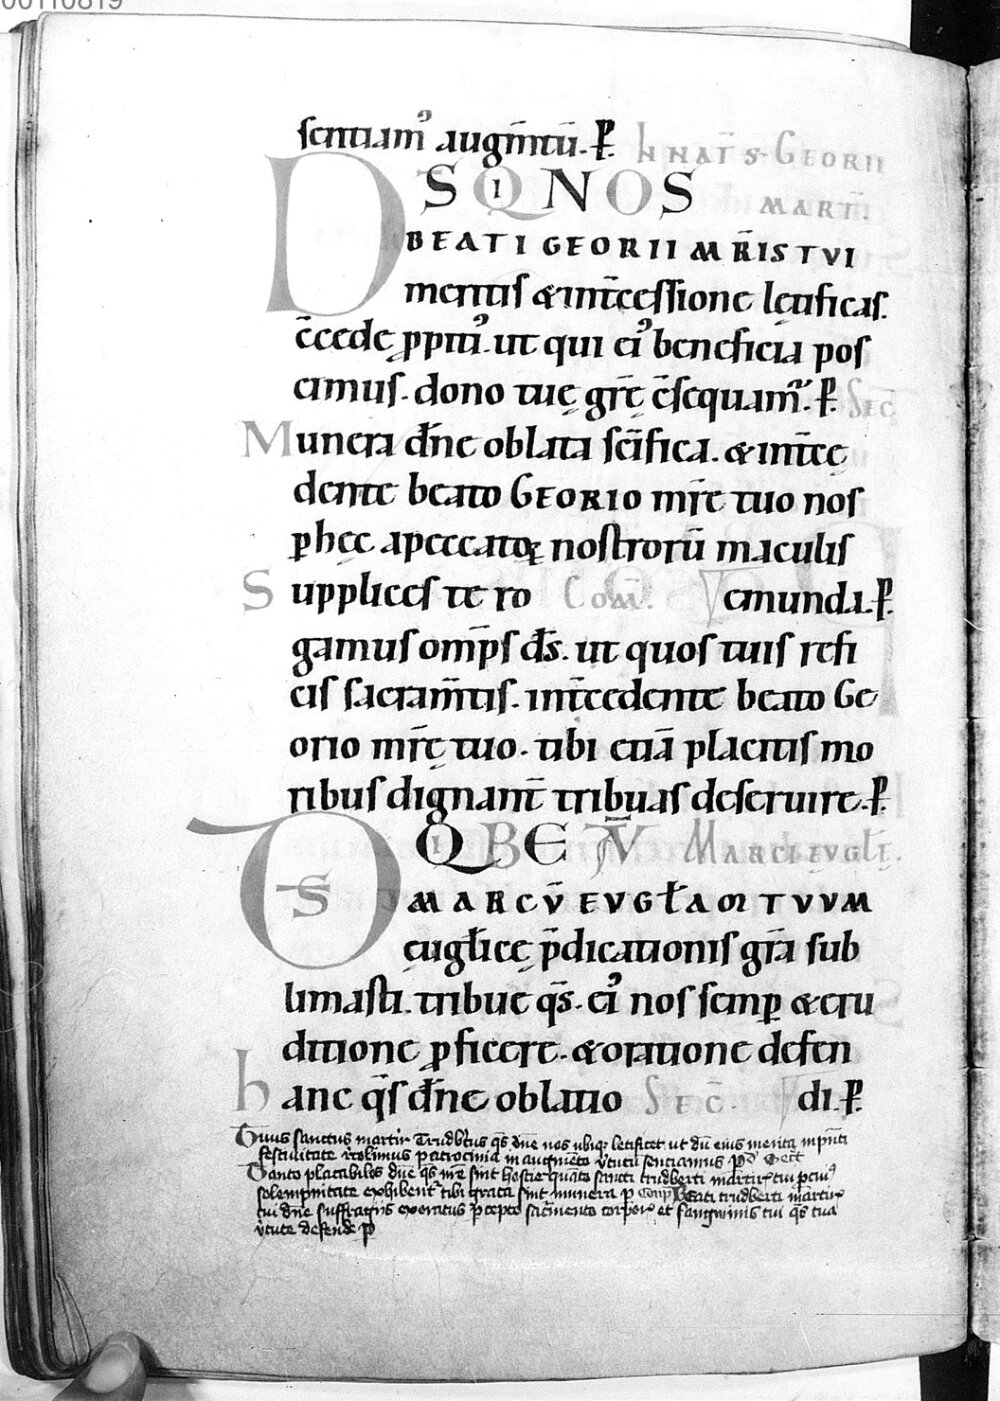 00110819
sentiam᾽ augm̄tū. P̱. IN NAT̄ S. GEORII
DS QI NOS MART̄.
BEATI GEORII MR̄IS TVI
meritis & int̄cessione lętificas.
c̄cede ꝓpiti᾽. ut qui ei᾽ beneficia pos
cimus. dono tuę gr̄ę c̄sequam᾽. P̱. SEC̄
Munera dn̄e oblata sc̄ifica. & int̄ce
dente beato GEORIO mr̄e tuo nos
ꝑ hęc a peccatoꝝ nostrorū maculis
Supplices te ro COM̄. emunda. P̱.
gamus om̄ps ds̄. ut quos tuis refi
cis sacram̄tis. int̄cedente beato Ge
orio mr̄ę tuo. tibi etiā placitis mo
ribus dignant̄ tribuas deseruire. P̱.
DS QI BEATV̄ MARCI EVGLĘ.
MARCV̄ EVGŁAM TVVM
ęugłicę p̄dicationis gr̄a sub
limasti. tribue qs̄. ei᾽ nos semꝑ & eru
ditione ꝓficere. & oratione defen
hanc qs̄ dn̄e oblatio SEC̄. di. P̱.
Huius sanctus martir Trudb̄tus qs̄ dn̄e nos ubiqꝫ letificet ut dū eius merita in pn̄ti
festiuitate colimus patrocinia in augmēto v̄tutū sentiamus P̄ Secr̄t
Santo placabiles dn̄e qs̄ in̄e sint hostie quāto sancti trudberti martirꝭ tui p̄ciu᾽
solempnitate exhibent᾽ tibi grata sint munera p Comp̄ Beati trudberti martirꝭ
tui dn̄e suffragiis exoratus ꝑcepto sacr̄mento corporꝭ et sangwinis tui qs̄ tua
v̄tute defende p̄